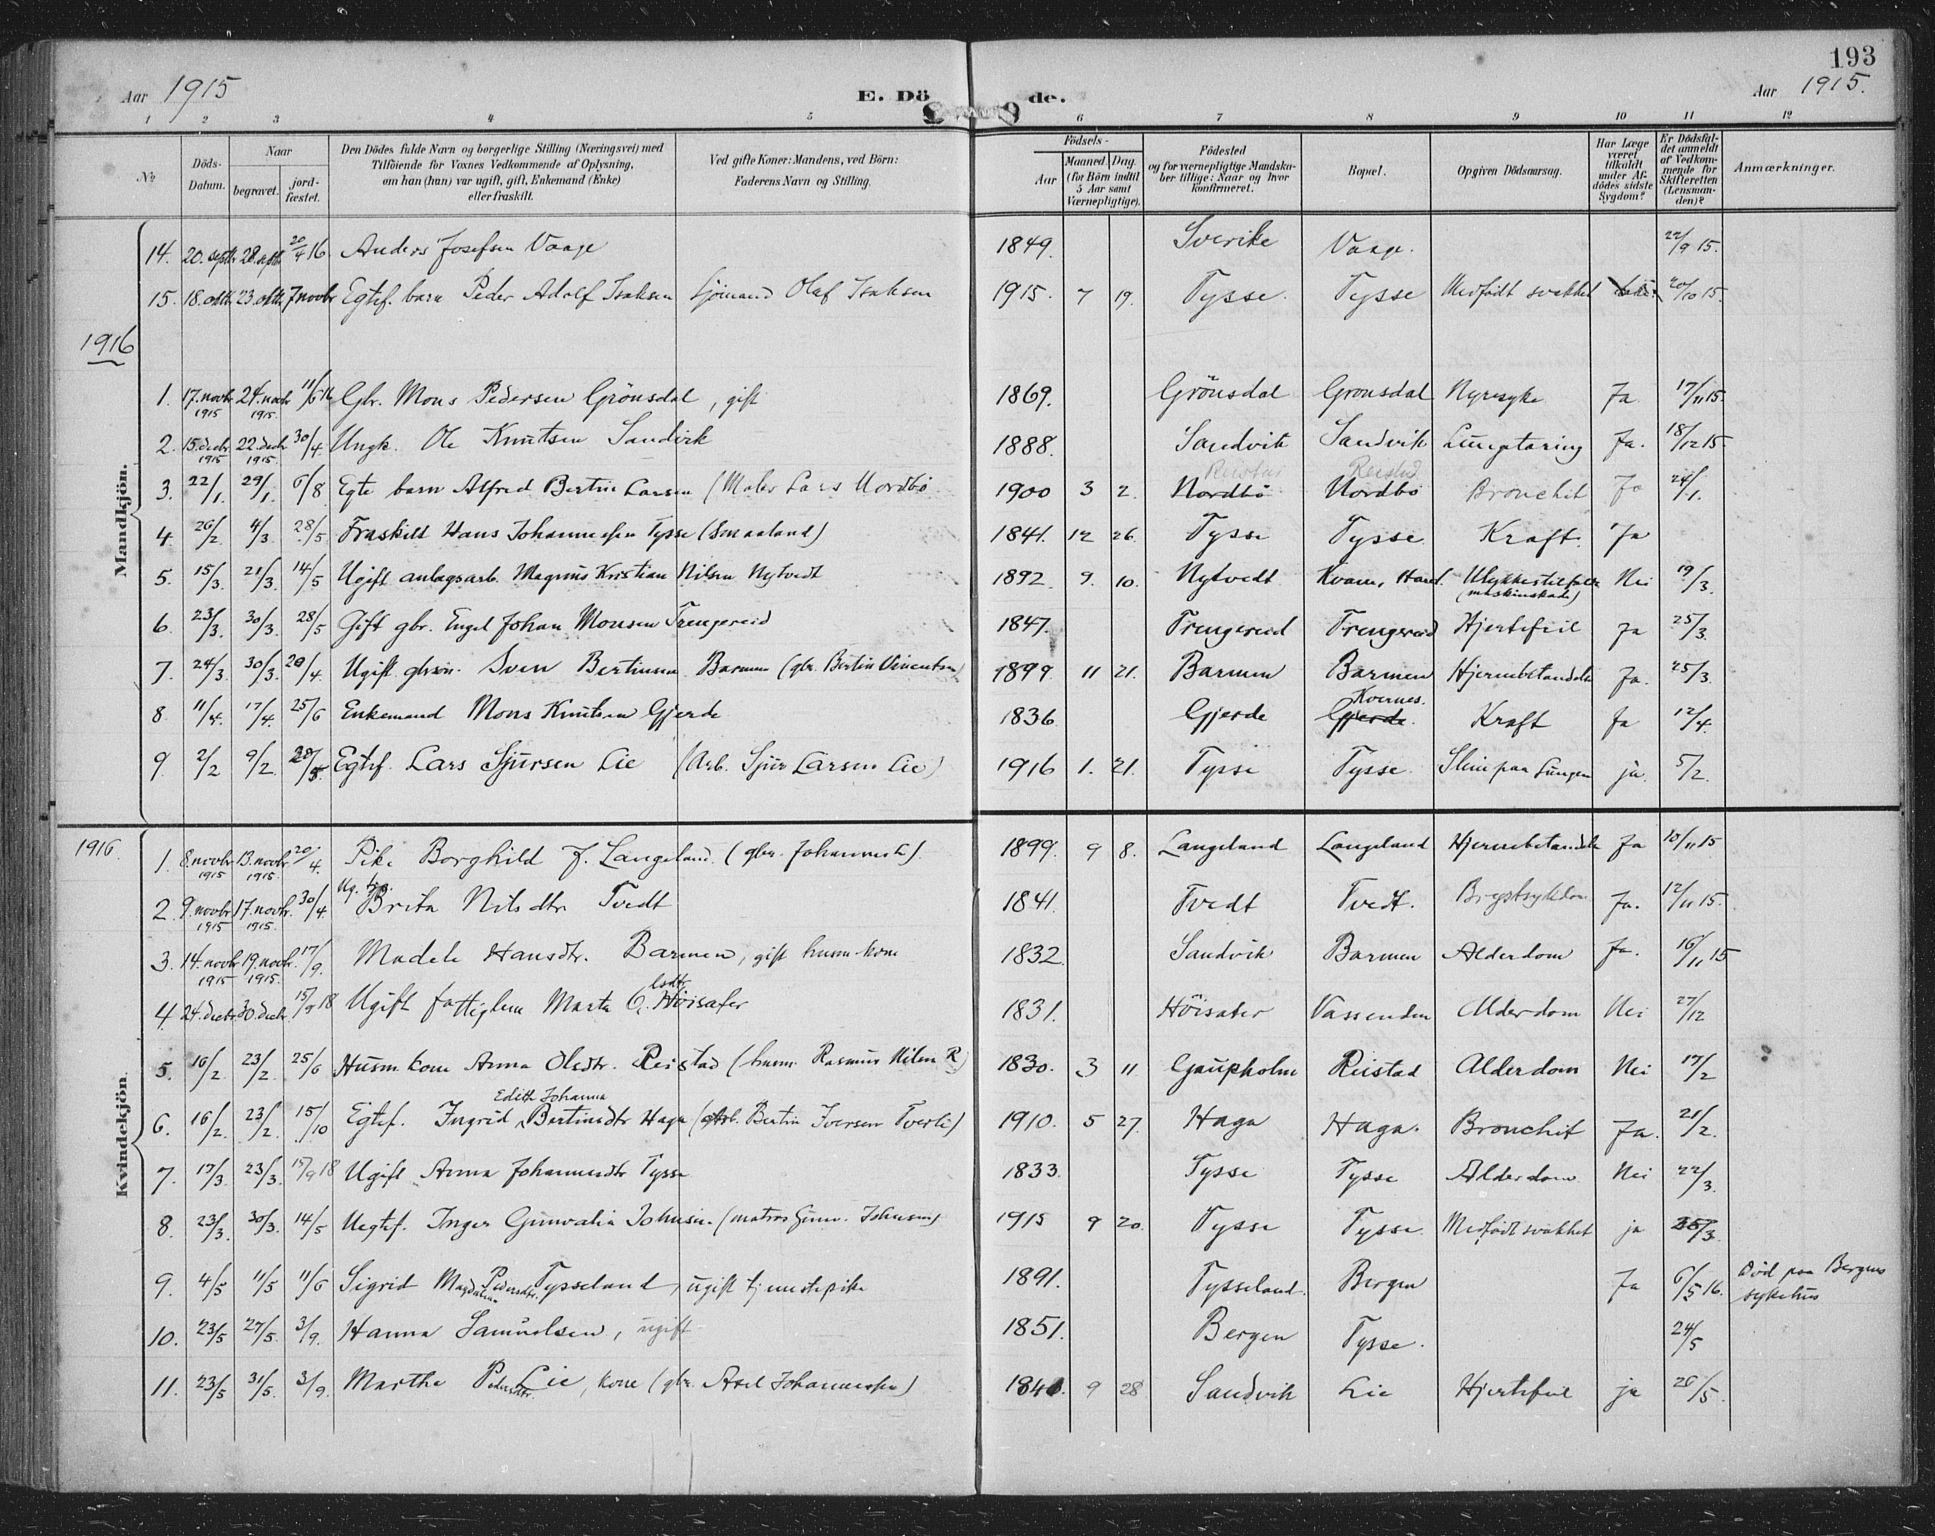 193
Aar 1915
E. Dö de.
Aar 1915.
1 2 3 4 5 6 7 8 9 10 11 12
No
Döds-Datum.
Naar
begravet.
jord-fæstet.
Den Dödes fulde Navn og borgerlige Stilling (Næringsvei) med
Tilföiende for Voxnes Vedkommende af Oplysning,
om han (hun) var ugift, gift, Enkemand (Enke)
eller fraskilt.
Ved gifte Koner: Mandens, ved Börn:
Faderens Navn og Stilling.
Födsels-
Aar
Maaned. Dag.
(for Börn indtil 5 Aar samt Værnepligtige).
Födested
og for værnepligtige Mandska-
ber tillige: Naar og hvor
konfirmeret.
Bopæl.
Opgiven Dödsaarsag.
Har Læge været tilkaldt under Af-dödes sidste Sygdom?
Er Dödsfal-det anmeldt af Vedkom-mende for Skifteretten (Lensman-den)?
Anmærkninger.
Mandkjön.
14. 20. septbr 28. septbr 20/4 16 Anders Josefsen Vaage 1849. Sverike Vaage. 22/9 15.
15. 18. oktbr. 23. oktbr. 7 novbr Egtef. barn Peder Adolf Isaksen Sjömand Olaf Isaksen 1915. 7 19. Tysse. Tysse Medfödt svakhet 20/10 15.
1916
1. 17. novbr 1915 24. novbr 1915. 11/6 16 Gbr. Mons Pedersen Grönsdal, gift 1869. Grönsdal Gronsdal Nyresyke Ja 17/11 15.
2. 15. decbr 1915 22. decbr 1915. 30/4. Ungk. Ole Knutsen Sandvik 1888. Sandvik Sandvik Lungetæring Ja. 18/12 15.
3. 22/1. 29/1. 6/8 Egte barn Alfred Bertin Larsen (Maler Lars Nordbö 1900 3 2. Nordbö Nordbö Reistad Bronchit Ja 24/1.
4. 26/2. 4/3. 28/5 Fraskilt Hans Johannessen Tysse (Smaaland) 1841. 12 26. Tysse Tysse Kræft. Ja
5. 15/3. 21/3. 14/5 Ugift anlægsarb. Magnus Kristian Nilsen Nytvedt 1892. 9. 10. Nytvedt Kvam, Hard. Ulykkestilfælde (maskinskade) Nei 19/3.
6. 23/3. 30/3. 28/5 Gift gbr. Engel Johan Monsen Trengereid 1847. Trengereid Trengereid Hjertefeil ja 25/3.
7. 24/3. 30/3. 20/4. Ugift gbrsn. Sven Bertinsen Barmen (gbr. Bertin Vincentsen) 1899. 11 21. Barmen Barmen Hjernebetændelse Ja. 25/3.
8. 11/4. 17/4. 25/6 Enkemand Mons Knutsen Gjerde 1836. Gjerde Gjerde. Kvernes. Kræft Ja 12/4.
9. 2/2 9/2. 28/5. Egtef. Lars Sjursen Lie (Arb. Sjur Larsen Lie) 1916 1. 21. Tysse Tysse. Slim paa Lungen ja. 5/2.
Kvindekjön.
1916.
1. 8. novbr 1915 13. novbr 1915. 20/4. Pike Borghild J. Langeland. (gbr. Johannes L.) 1899. 9 8. Langeland Langeland Hjernebetændelse Ja 10/11 15
2. 9. novbr 1915 17. novbr. 1915. 30/4 Ug. Brita Nilsdtr. Tvedt 1841. Tvedt Tvedt. Brystsykdom Ja. 12/11 15.
3. 14. novbr 1915 19. novbr. 1915. 17/9. Madele Hansdtr. Barmen, gift husm.kone 1832. Sandvik Barmen Alderdom Ja. 16/11 15
4 24. decbr. 30. decbr. 15/9 18 Ugift fattiglem Marta O. Höisæter 1831. Höisæter Vassenden Alderdom Nei 27/12
5. 16/2. 23/2. 25/6 Husm. kone Anna Olsdtr. Reistad (husm. Rasmus Nilsen R.) 1830. 3 11. Gaupholm Reistad Alderdom Nei 17/2
6. 16/2. 23/2. 15/10 Egtef. Ingrid Edith Johanna Bertinsdtr Haga (Arb. Bertin Iversen Tverli) 1910. 5 27. Haga Haga. Bronchit Ja. 21/2.
7. 17/3. 23/3. 15/9 18 Ugift Anna Johannesdtr Tysse 1833. Tysse Tysse Alderdom Nei 22/3.
8. 23/3. 30/3. 14/5 Uegtef. Inger Gunvalia Johnsen. (matros Gunv. Johnsen) 1915 9 20. Tysse Tysse. Medfödt svakhet ja 25/3.
9. 4/5 11/5 11/6 Sigrid Magdalena Pedersdtr. Tysseland, ugift tjenestepike 1891. Tysseland. Bergen Ja 6/5 16. Död paa Bergens sykehus
10. 23/5 27/5. 3/9. Hanna Samuelsen, ugift 1851. Bergen Tysse. 24/5
11. 23/5 31/5. 3/9. Martha Pedersdtr. Lie, kone (gbr. Axel Johannessen) 1840. 9 28 Sandvik Lie Hjertefeil ja 26/5.